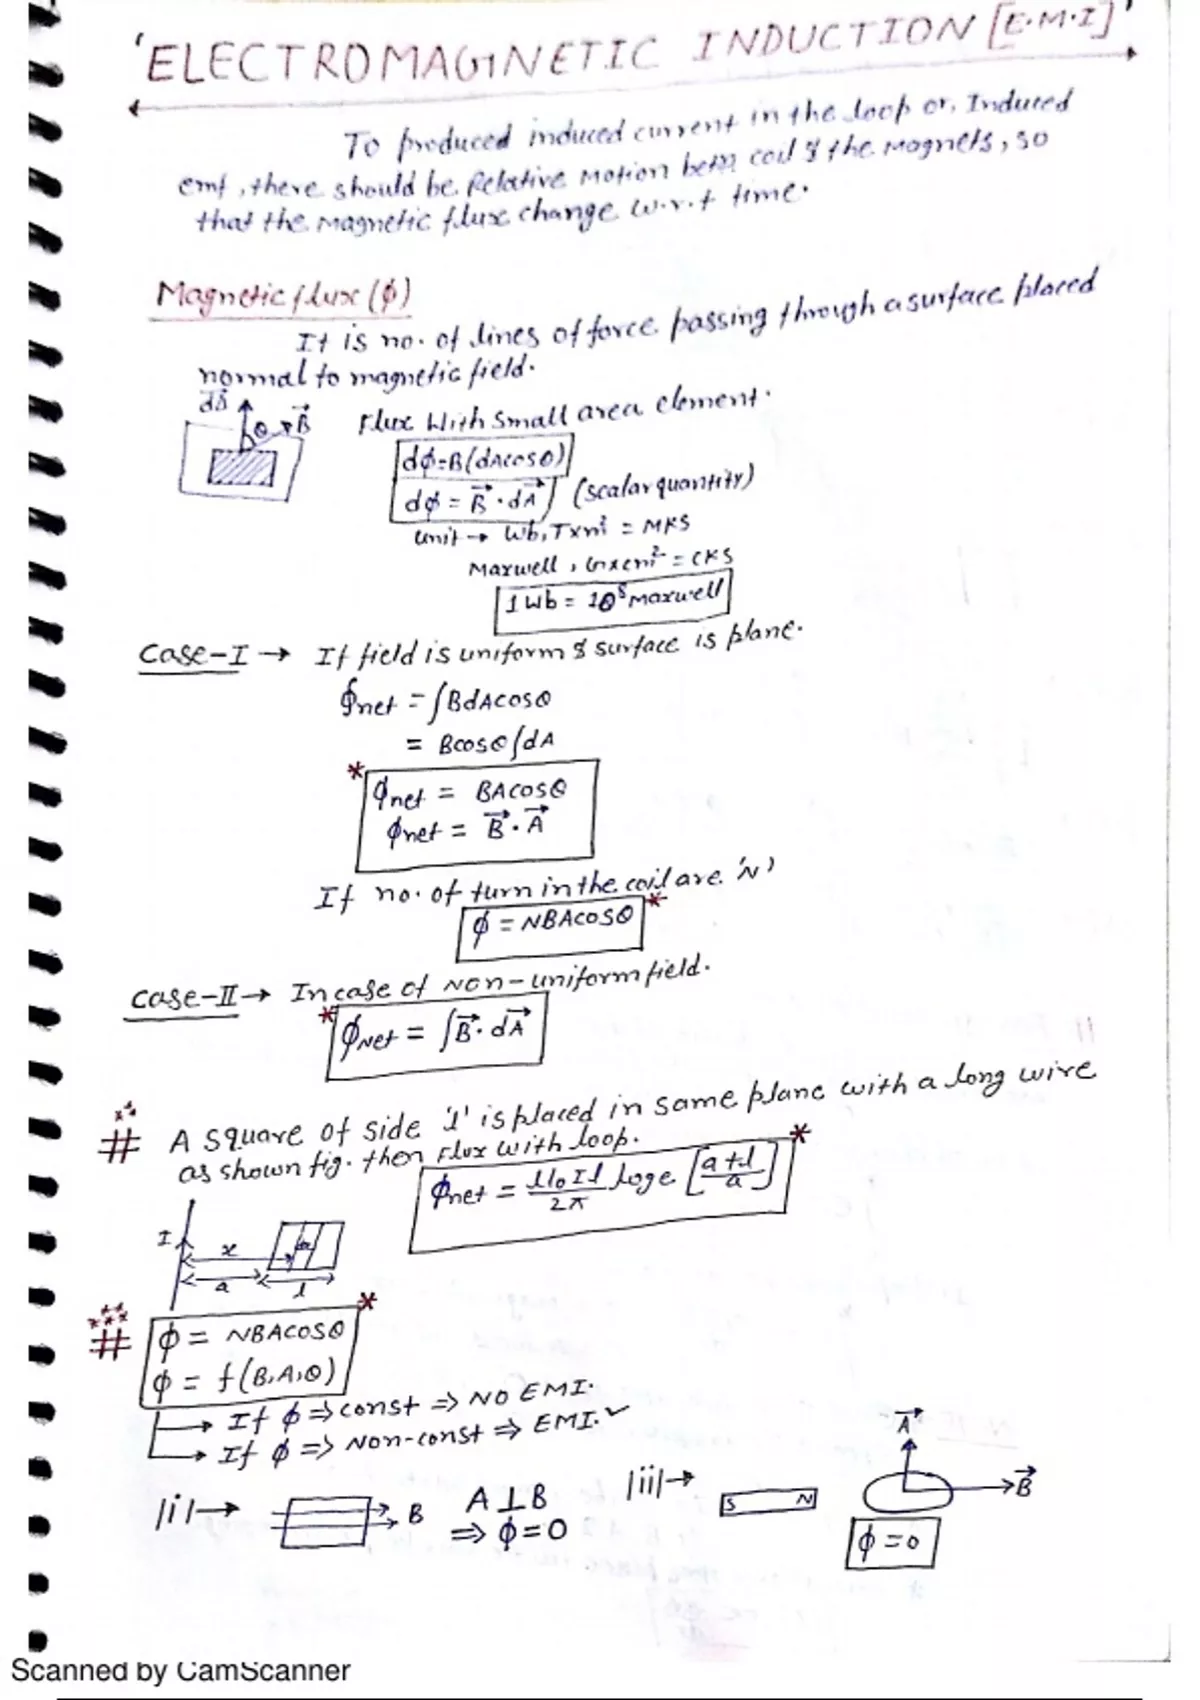 'ELECTROMAGNETIC INDUCTION [E.M.I]'
To produced induced current in the loop or, Induced
emf, there should be Relative Motion betn coil & the magnets, so
that the magnetic flux change w.r.t time.
Magnetic flux (ϕ)
It is no. of lines of force passing through a surface placed
normal to magnetic field.
Flux With small area element.
θ B⃗
dϕ=B(dAcosθ)
dϕ = B⃗ · dA⃗ (scalar quantity)
unit → Wb, T×m² = MKS
Maxwell, G×cm² = CKS
1 Wb = 10⁸ maxwell
Case-I → If field is uniform & surface is plane.
ϕnet = ∫BdAcosθ
= Bcosθ∫dA
* ϕnet = BAcosθ
ϕnet = B⃗ · A⃗
If no. of turn in the coil are 'N'
ϕ = NBAcosθ *
Case-II → In case of Non-uniform field.
* ϕNet = ∫B⃗ · dA⃗
# A square of side 'l' is placed in same plane with a long wire
as shown fig. then Flux with loop.
ϕnet = μ₀Il/2π loge [a+l/a] *
I x
a l
# ϕ = NBAcosθ *
ϕ = f(B,A,θ)
→ If ϕ ⇒ const ⇒ NO EMI.
→ If ϕ ⇒ Non-const ⇒ EMI. ✓
|i| → B A⊥B |ii| → S N A⃗ B⃗
⇒ ϕ=0 ϕ=0
Scanned by CamScanner